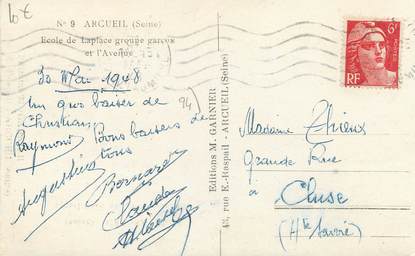 10€
N° 9 ARCUEIL (Seine)
Ecole de Laplace groupe garçons
et l'Avenue
30 Mai 1948
un gros baiser de
Christian
(94)
Raymond Bons baisers de
tous
Augustine
Bernard
Claude
Editions M. GARNIER
43, rue E.-Raspail - ARCUEIL (Seine)
6F
RF
Madame Thieux
Grande Rue
à
Cluse
(Hte Savoie)